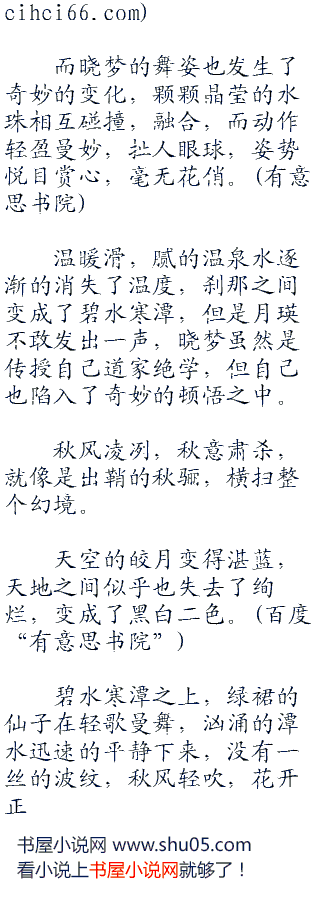 cihci66.com)
而晓梦的舞姿也发生了
奇妙的变化，颗颗晶莹的水
珠相互碰撞，融合，而动作
轻盈曼妙，扯人眼球，姿势
悦目赏心，毫无花俏。(有意
思书院)
温暖滑，腻的温泉水逐
渐的消失了温度，刹那之间
变成了碧水寒潭，但是月瑛
不敢发出一声，晓梦虽然是
传授自己道家绝学，但自己
也陷入了奇妙的顿悟之中。
秋风凌冽，秋意肃杀，
就像是出鞘的秋骊，横扫整
个幻境。
天空的皎月变得湛蓝，
天地之间似乎也失去了绚
烂，变成了黑白二色。(百度
“有意思书院”)
碧水寒潭之上，绿裙的
仙子在轻歌曼舞，汹涌的潭
水迅速的平静下来，没有一
丝的波纹，秋风轻吹，花开
正
书屋小说网 www.shu05.com
看小说上书屋小说网就够了！